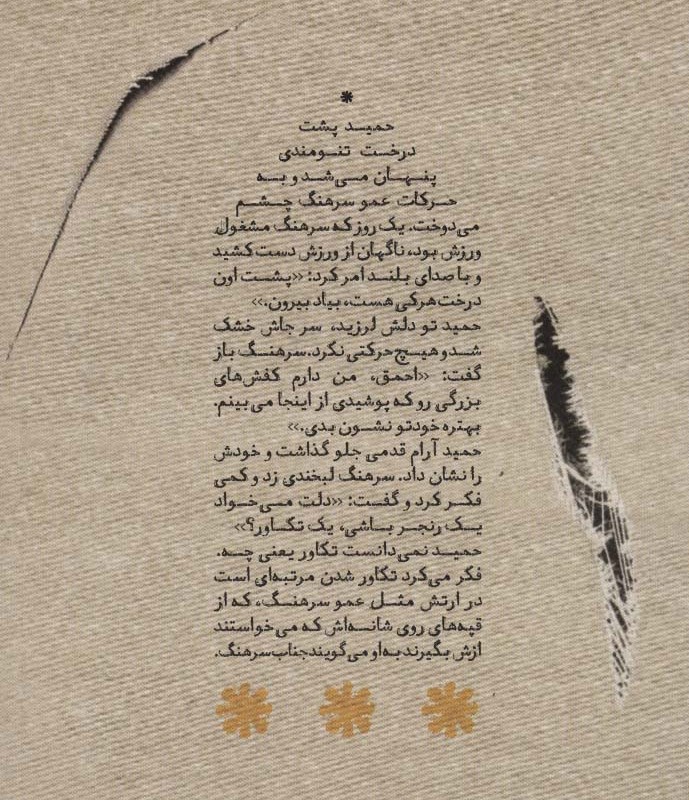 حمید پشت
درخت تنومندی
پنهان می‌شد و به
حرکات عمو سرهنگ چشم
می‌دوخت. یک روز که سرهنگ مشغول
ورزش بود، ناگهان از ورزش دست کشید
و با صدای بلند امر کرد: «پشت اون
درخت هرکی هست، بیاد بیرون.»
حمید تو دلش لرزید، سر جاش خشک
شد و هیچ حرکتی نکرد. سرهنگ باز
گفت: «احمق، من دارم کفش‌های
بزرگی رو که پوشیدی از اینجا می‌بینم.
بهتره خودتو نشون بدی.»
حمید آرام قدمی جلو گذاشت و خودش
را نشان داد. سرهنگ لبخندی زد و کمی
فکر کرد و گفت: «دلت می‌خواد
یک رنجر باشی، یک تکاور؟»
حمید نمی‌دانست تکاور یعنی چه.
فکر می‌کرد تکاور شدن مرتبه‌ای است
در ارتش مثل عمو سرهنگ، که از
قپه‌های روی شانه‌اش که می‌خواستند
ازش بگیرند به او می‌گویند جناب سرهنگ.